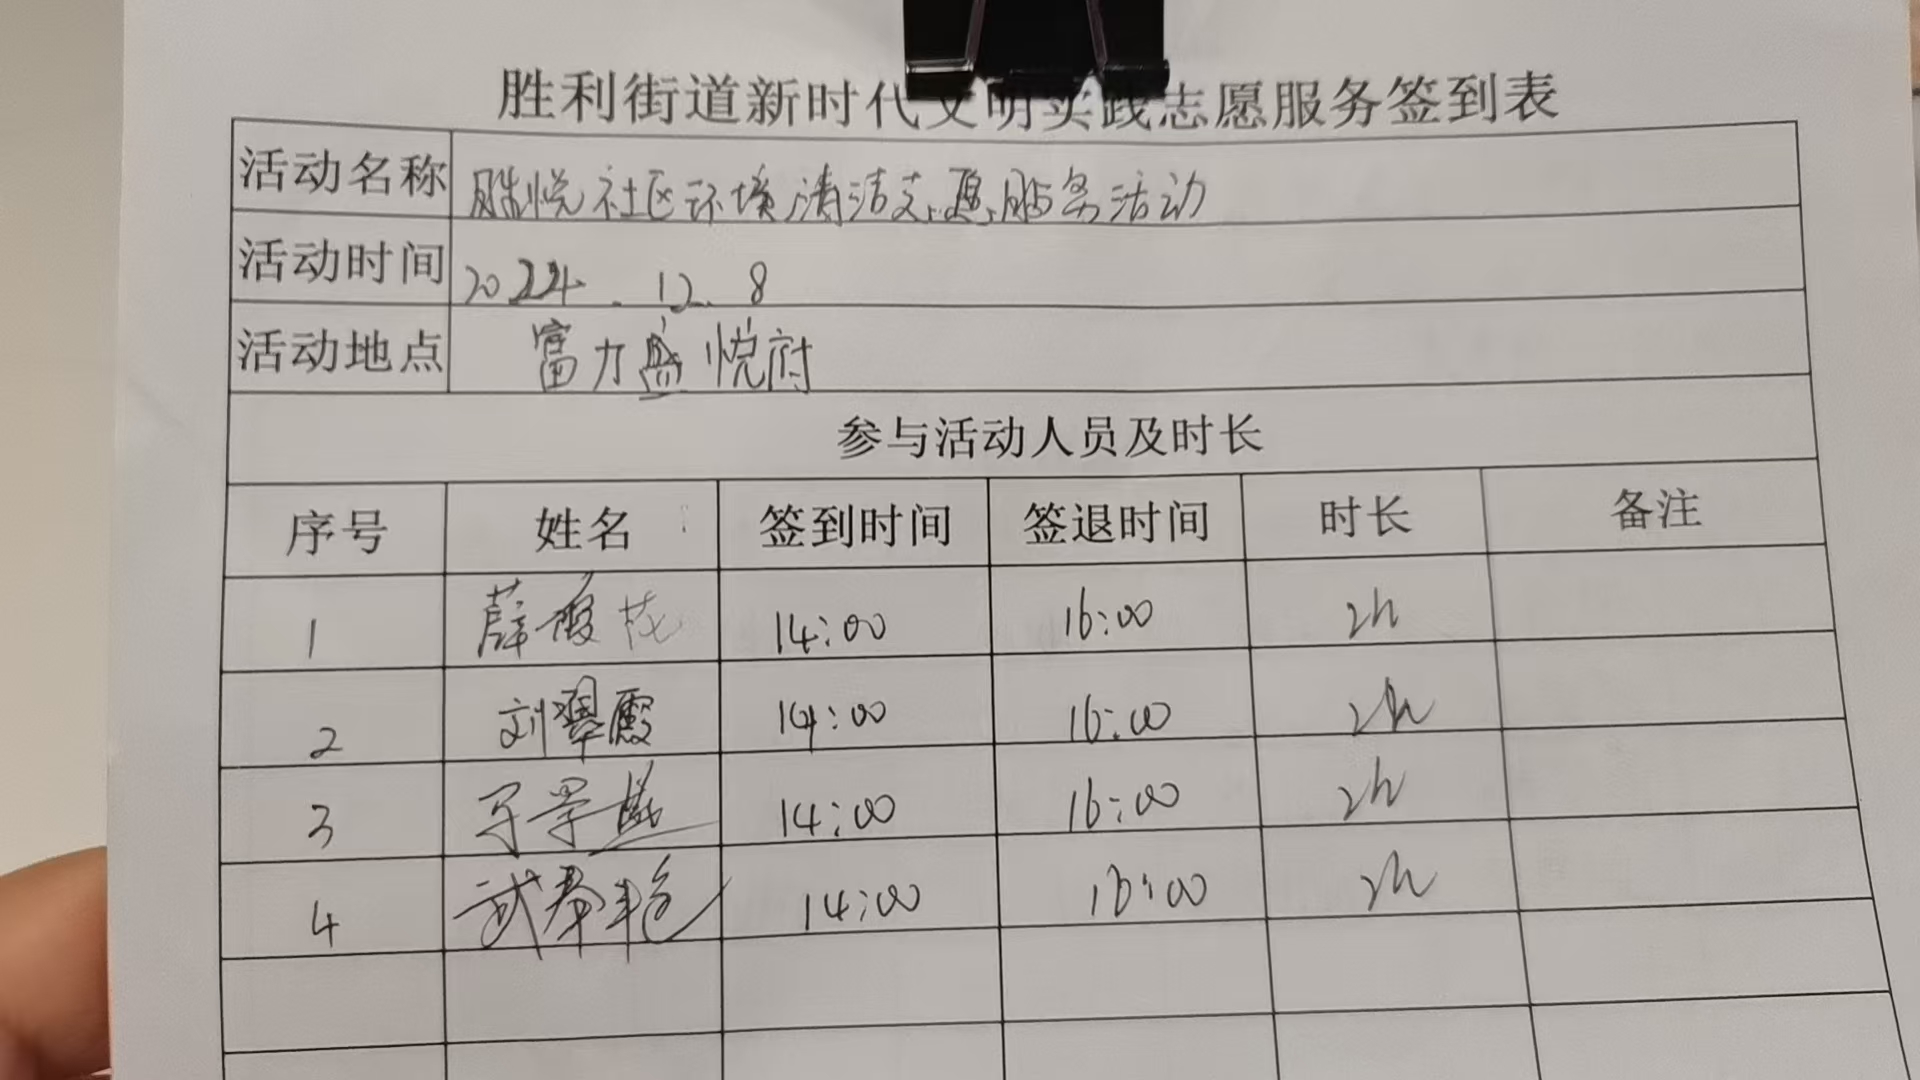 胜利街道新时代文明实践志愿服务签到表
活动名称 胜悦社区环境清洁志愿服务活动
活动时间 2024.12.8
活动地点 富力盛悦府
参与活动人员及时长
序号 姓名 签到时间 签退时间 时长 备注
1 薛 14:00 16:00 2h
2 刘翠霞 14:00 16:00 2h
3 14:00 16:00 2h
4 武春艳 14:00 16:00 2h